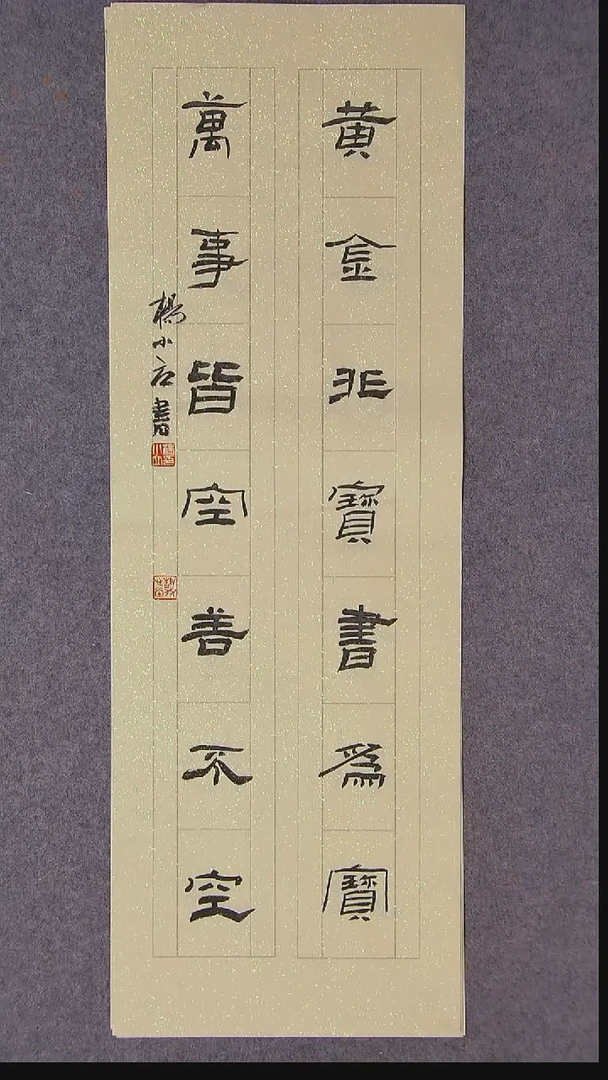 黃金非寶書為寶
萬事皆空善不空
楊小石書